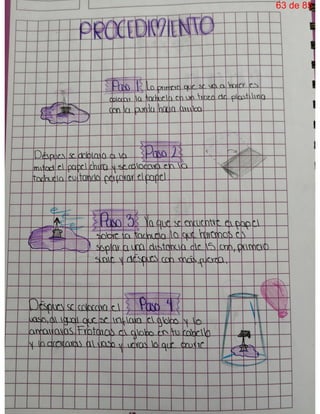 63 de 8
PROCEDIMIENTO
Paso 1: Lo primero que se va a hacer es
colocar la tachuela en un trozo de plastilina
con la punta hacia arriba
Despues se doblara a la Paso 2
mitad el papel china y se colocara en la
tachuela evitando perforar el papel
Paso 3: Ya que se encuentre el papel
sobre la tachuela lo que haremos es
soplar a una distancia de 15 cm, primero
suave y despues con más fuerza.
Despues se colocara el Paso 4
vaso, al igual que se inflara el globo y lo
amarraras. Frotaras el globo en tu cabello
y lo acercaras al vaso y veras lo que ocurre